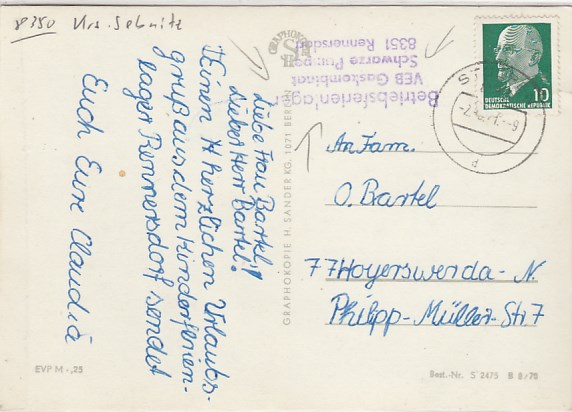 8350 Krs. Sebnitz
Liebe Frau Bartel!
Lieber Herr Bartel!
Einen herzlichen Urlaubs-
gruß aus dem Kinderferien-
lager Rennersdorf sendet
Euch Eure Claudia
GRAPHOKOPIE
H S
Betriebsferienlager
VEB Gaskombinat
Schwarze Pumpe
8351 Rennersdorf
10
DEUTSCHE
DEMOKRATISCHE REPUBLIK
An Fam.
O. Bartel
77 Hoyerswerda - N.
Philipp-Müller-Str. 7
GRAPHOKOPIE H. SANDER KG, 1071 BERLIN
EVP M -,25
Best.-Nr. S 2475 B 8/70